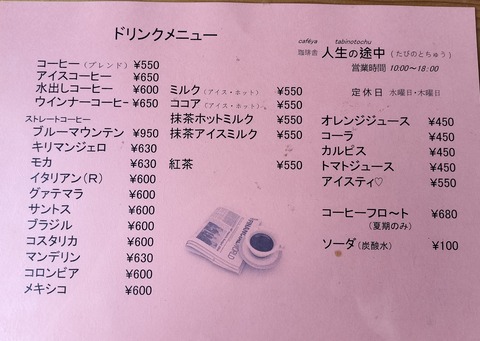 ドリンクメニュー
caféya tabinotochu
珈琲舎 人生の途中 (たびのとちゅう)
営業時間 10:00～18:00
定休日 水曜日・木曜日
コーヒー(ブレンド) ¥550
アイスコーヒー ¥650
水出しコーヒー ¥600
ウインナーコーヒー ¥650
ストレートコーヒー
ブルーマウンテン ¥950
キリマンジェロ ¥630
モカ ¥630
イタリアン(R) ¥600
グァテマラ ¥600
サントス ¥600
ブラジル ¥600
コスタリカ ¥600
マンデリン ¥630
コロンビア ¥600
メキシコ ¥600
ミルク(アイス・ホット) ¥550
ココア(アイス・ホット) ¥550
抹茶ホットミルク ¥550
抹茶アイスミルク ¥550
紅茶 ¥550
オレンジジュース ¥450
コーラ ¥450
カルピス ¥450
トマトジュース ¥450
アイスティ♡ ¥550
コーヒーフロ～ト ¥680
(夏期のみ)
ソーダ(炭酸水) ¥100